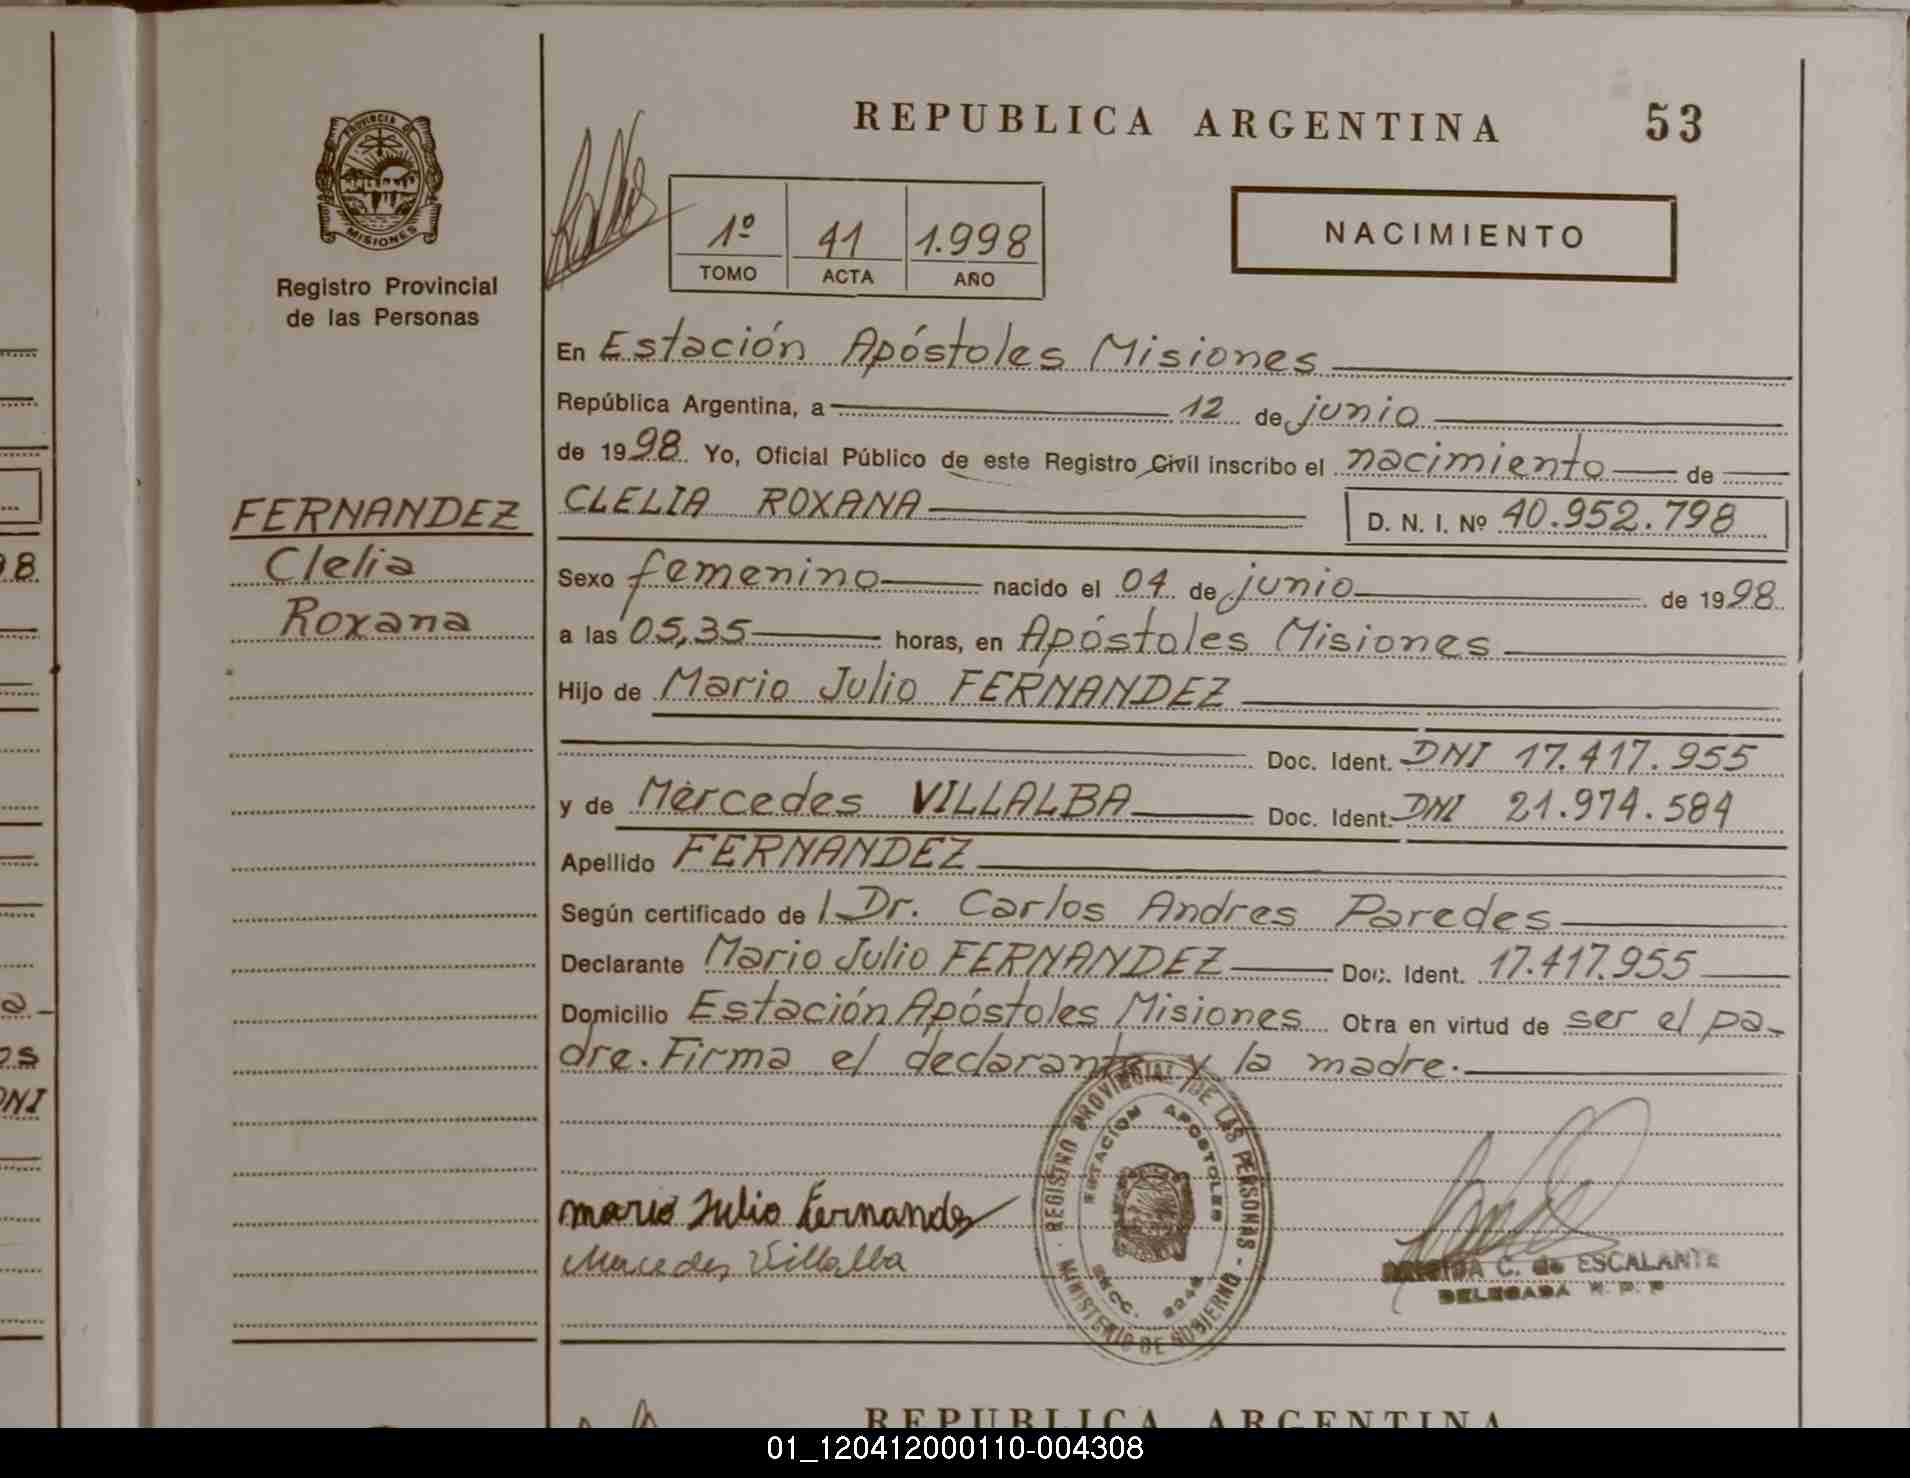 REPUBLICA ARGENTINA 53
PROVINCIA DE
MISIONES
Registro Provincial
de las Personas
1º 41 1.998
TOMO ACTA AÑO
NACIMIENTO
En Estación Apóstoles Misiones
República Argentina, a 12 de junio
de 1998. Yo, Oficial Público de este Registro Civil inscribo el nacimiento de
FERNANDEZ
Clelia
Roxana
CLELIA ROXANA D. N. I. Nº 40.952.798
Sexo femenino nacido el 04 de junio de 1998
a las 05,35 horas, en Apóstoles Misiones
Hijo de Mario Julio FERNANDEZ
Doc. Ident. DNI 17.417.955
y de Mercedes VILLALBA Doc. Ident. DNI 21.974.584
Apellido FERNANDEZ
Según certificado de l Dr. Carlos Andres Paredes
Declarante Mario Julio FERNANDEZ Doc. Ident. 17.417.955
Domicilio Estación Apóstoles Misiones Obra en virtud de ser el pa-
dre. Firma el declarante y la madre.
REGISTRO PROVINCIAL DE LAS PERSONAS - MINISTERIO DE GOBIERNO -
ESTACION APOSTOLES
mario Julio Fernandez
Mercedes Villalba
C. de ESCALANTE
DELEGADA R. P. P.
REPUBLICA ARGENTINA
98
a
os
DNI
01_120412000110-004308